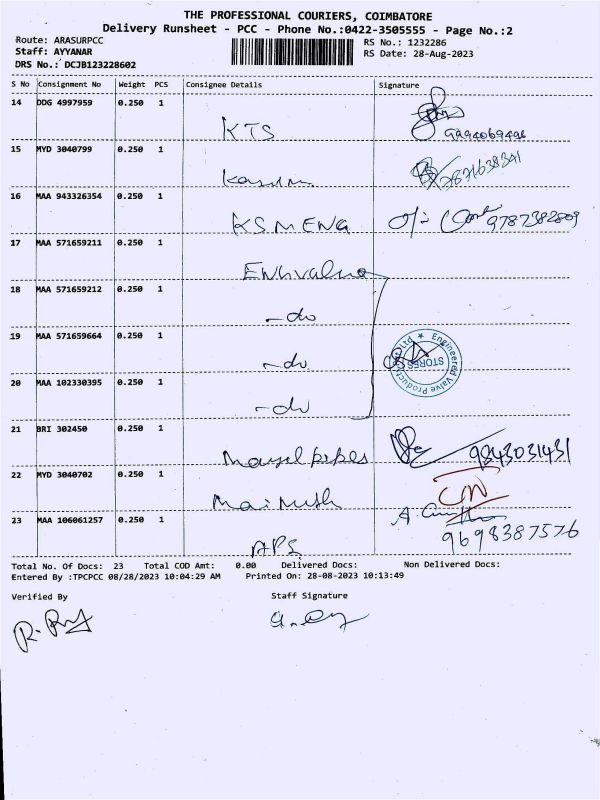 THE PROFESSIONAL COURIERS, COIMBATORE
Delivery Runsheet - PCC - Phone No.:0422-3505555 - Page No.:2
Route: ARASURPCC RS No.: 1232286
Staff: AYYANAR RS Date: 28-Aug-2023
DRS No.: DCJB123228602
S No Consignment No Weight PCS Consignee Details Signature
14 DDG 4997959 0.250 1
KTS 9994069496
15 MYD 3040799 0.250 1
16 MAA 943326354 0.250 1
KSM ENG 9787382809
17 MAA 571659211 0.250 1
18 MAA 571659212 0.250 1
-do
19 MAA 571659664 0.250 1
-do
Engineered Valve Products Pvt Ltd ★
STORES
20 MAA 102330395 0.250 1
-do
21 BRI 302450 0.250 1
9843031431
22 MYD 3040702 0.250 1
23 MAA 106061257 0.250 1
9698387576
APS
Total No. Of Docs: 23 Total COD Amt: 0.00 Delivered Docs: Non Delivered Docs:
Entered By :TPCPCC 08/28/2023 10:04:29 AM Printed On: 28-08-2023 10:13:49
Verified By Staff Signature